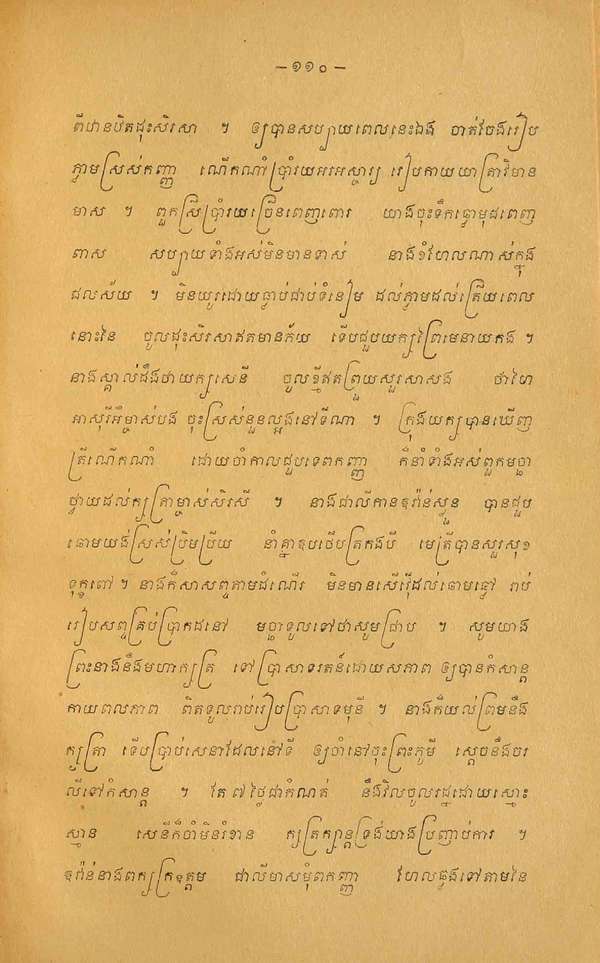 – ១១០ –
ពីឋានបិតដុះសិរសា ។ ឲ្យបានសប្បាយពេលនេះឯង ចាត់ចែងរៀប
ភ្នាមស្រស់កញ្ញា ណើកណាំប្រាំរយអរអស្ចារ្យ រៀបកាយយាត្រាវិមាន
មាស ។ ពួកស្រីប្រាំរយច្រើនពេញពោរ យាងចុះទឹកថ្លាមុជពេញ
ពាស សប្បាយទាំងអស់មិនមានទាស់ នាងខំហែលណាស់ក្នុង
ជលស័យ ។ មិនយូរដោយធ្លាប់ជាប់ទំនៀម ដល់ភ្លាមដល់ត្រើយពេល
នោះនៃ ចូលដុះសិរសាឥតមានភ័យ ទើបជួបយក្សព្រៃមេនាយកង ។
នាងស្គាល់ដឹងថាយក្សសេនី ចូលខ្មីឥតព្រួយសួរសាសង ថាហៃ
អាសុរីអឺម្ចាស់បង ចុះស្រស់នួនល្អងនៅទីណា ។ ក្រុងយក្សបានឃើញ
ត្រីណើកណាំ ដោយចាំកាលជួបទេពកញ្ញា ក៏នាំទាំងអស់ពួកមច្ឆា
ថ្វាយដល់ក្សត្រាម្ចាស់សិរសី ។ នាងជាលីកានខ្វរ៉ាន់សួន បានជួប
ឆោមយង់ស្រស់ប្រិមប្រិយ នាំគ្នាខុបថើបត្រកងបី មេត្រីបានសួរសុខ
ទុក្ខពៅ ។ នាងក៏សាសព្ទតាមដំណើរ មិនមានសើរើដល់ឆោមឆ្លៅ រាប់
រៀបសព្ទគ្រប់ប្រាកដនៅ មច្ឆាទូលទៅថាសូមជ្រាប ។ សូមយាង
ព្រះនាងនឹងមហាក្សត្រ ទៅប្រាសាទរតន៍ដោយសភាព ឲ្យបានកំសាន្ត
កាយពលភាព ពិតទូលរាប់រៀបប្រាសាទមុនី ។ នាងក៏យល់ព្រមនឹង
ក្សត្រា ទើបប្រាប់សេនាដែលនៅទី ឲ្យចាំនៅចុះព្រះភូមី ស្តេចនឹងចរ
លីទៅកំសាន្ត ។ តែ ៧ ថ្ងៃជាកំណត់ នឹងវិលចូលរដ្ឋដោយស្មោះ
ស្មាន សេនីក៏ចាំមិនរំខាន ក្សត្រក្សាន្តទ្រង់យាងប្រញាប់ការ ។
ខ្វរ៉ាន់នាងពក្យក្រខុត្តម ជាលីមាសមុំពកញ្ញា ហែលផ្លូងទៅតាមនៃ